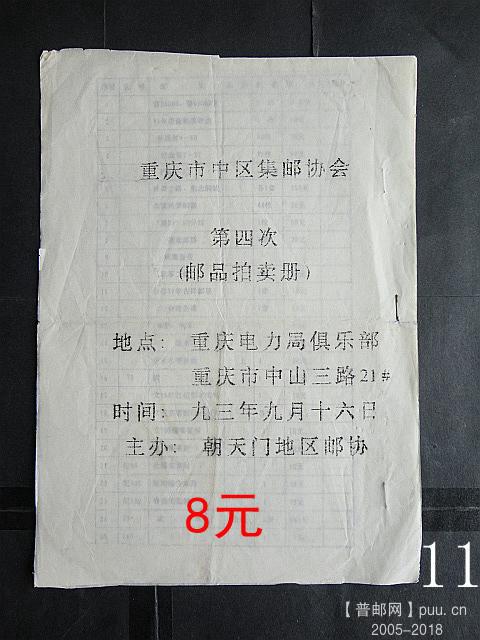 重庆市中区集邮协会
第四次
(邮品拍卖册)
地点: 重庆电力局俱乐部
重庆市中山三路21#
时间: 九三年九月十六日
主办: 朝天门地区邮协
8元
11
【普邮网】puu.cn
2005-2018